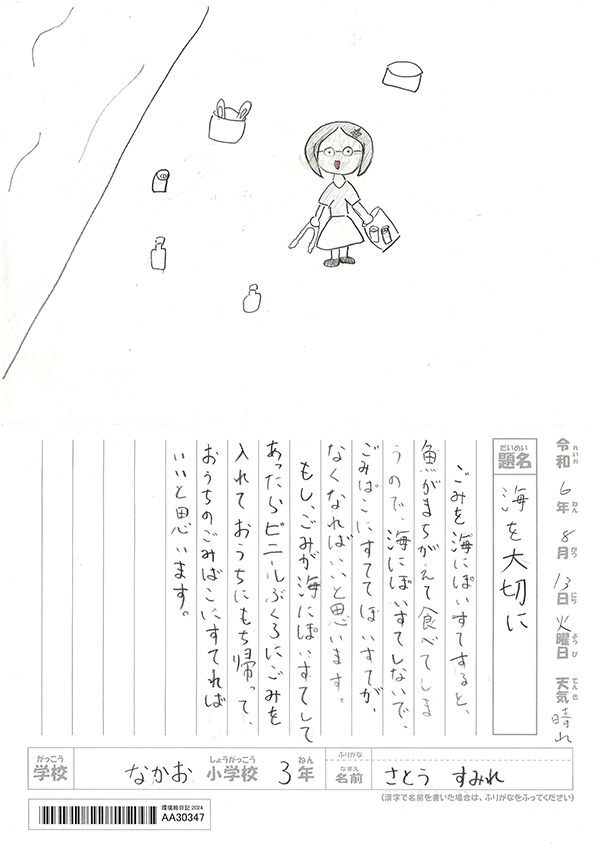 令和 れいわ 6 年 ねん 8 月 がつ 13 日 にち 火 曜日 ようび 天気 てんき 晴れ
だいめい
題名 海を大切に
ごみを海にぽいすてすると、
魚がまちがえて食べてしま
うので、海にぽいすてしないで、
ごみばこにすててぽいすてが、
なくなればいいと思います。
もし、ごみが海にぽいすてして
あったらビニールぶくろにごみを
入れておうちにもち帰って、
おうちのごみばこにすてれば
いいと思います。
がっこう しょうがっこう ねん ふりがな
学校 なかお 小学校 3 年 なまえ 名前 さとう すみれ
(漢字で名前を書いた場合は、ふりがなをふってください)
環境絵日記 2024
AA30347